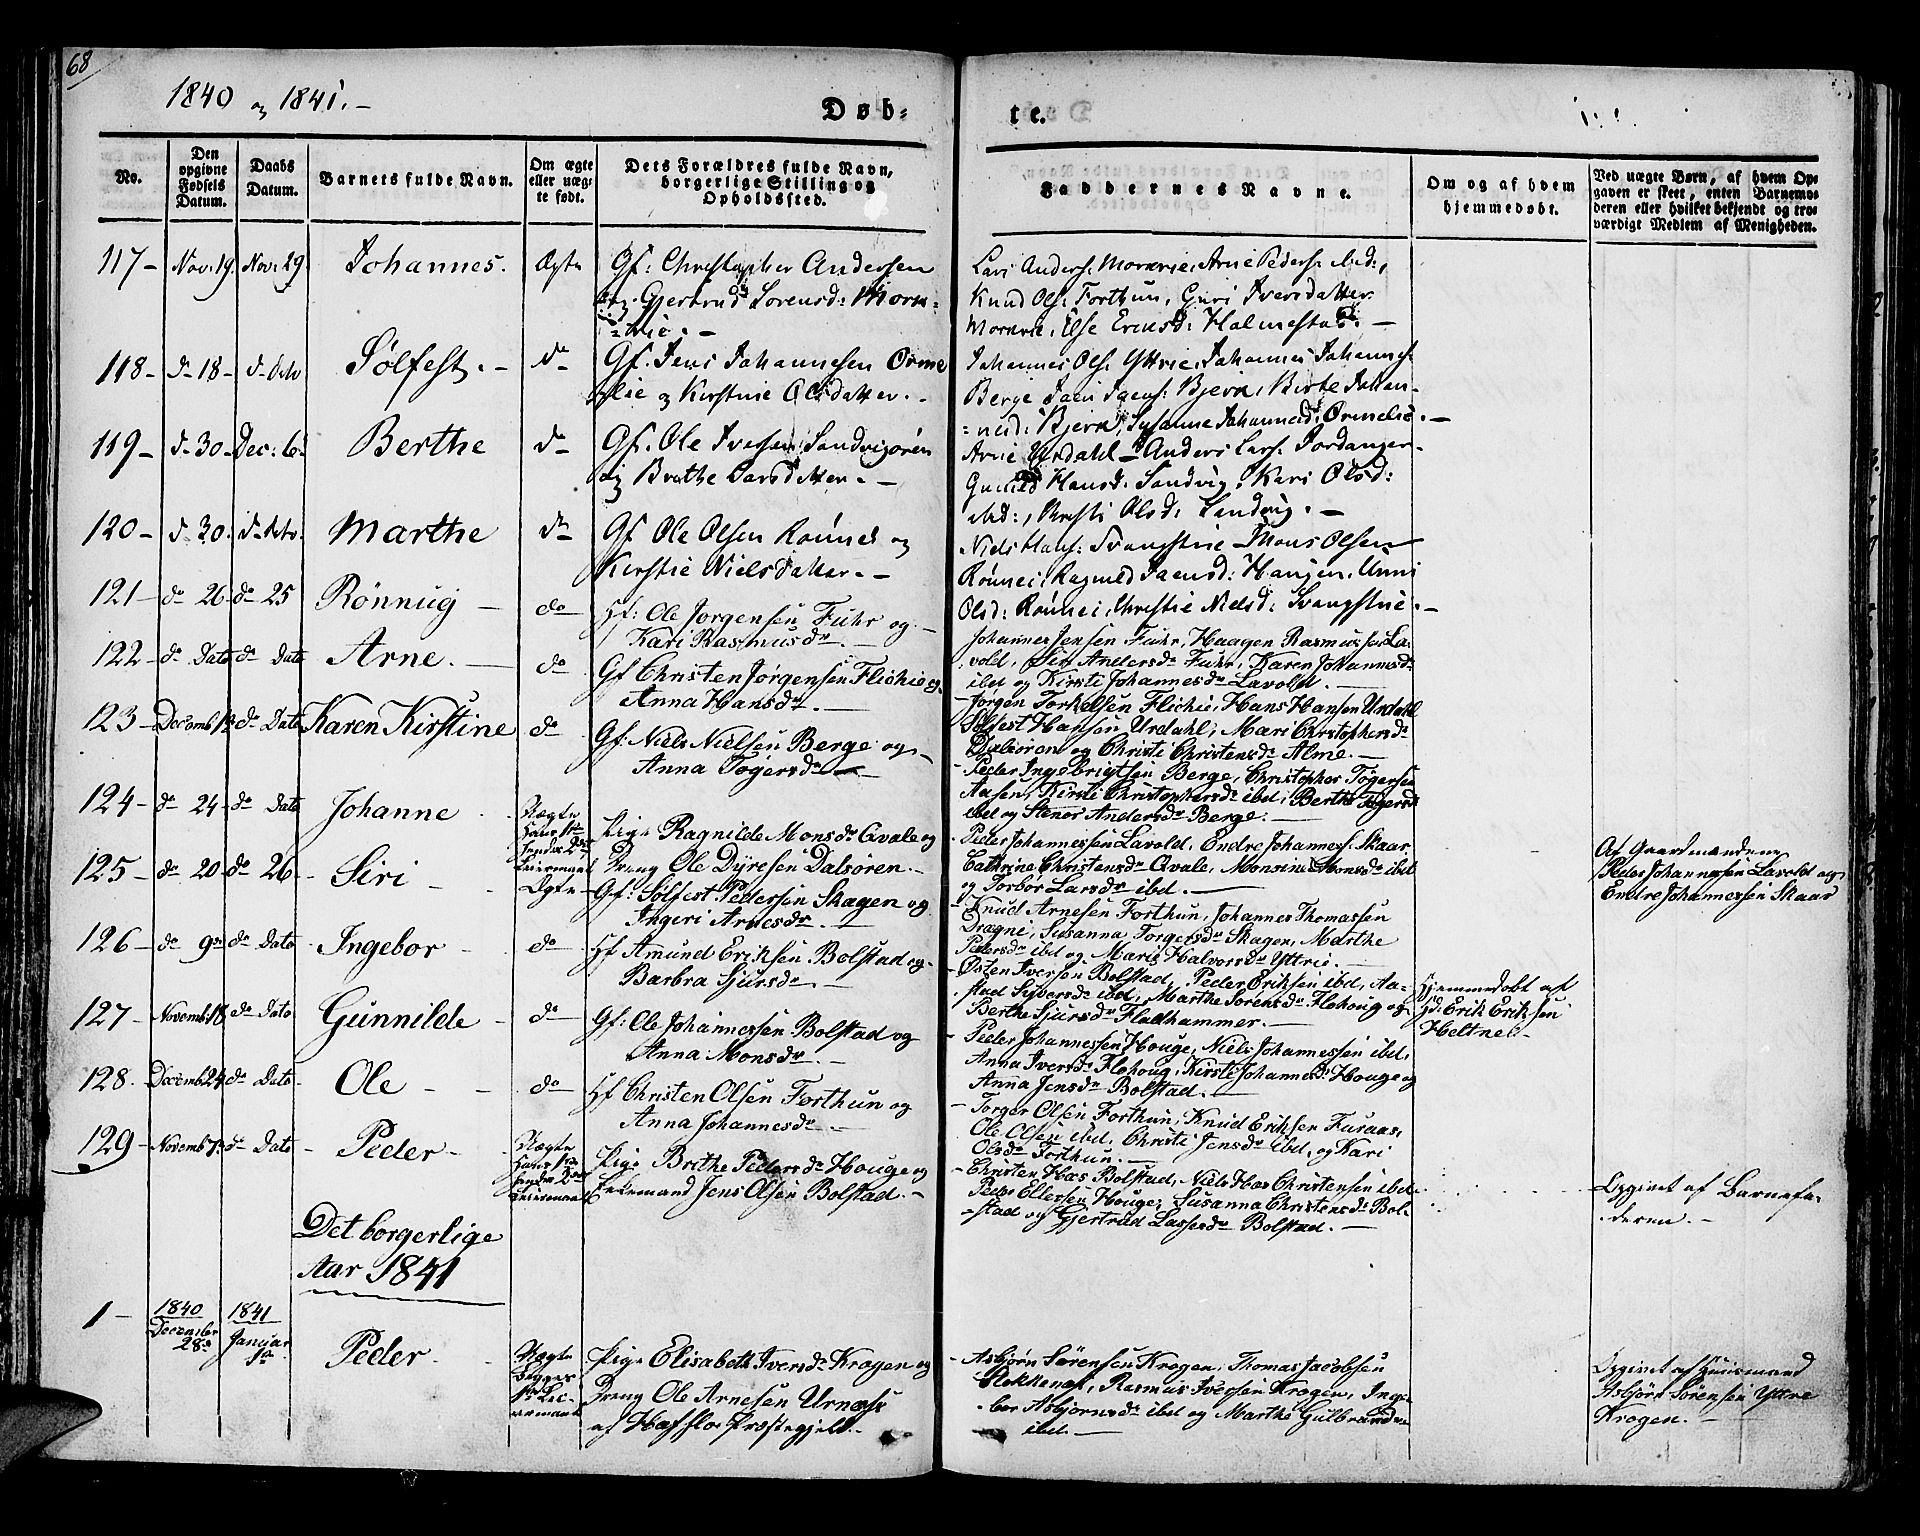 68
1840 og 1841.-
Døb-
te.
No.
Den opgivne Fødsels Datum.
Daabs Datum.
Barnets fulde Navn.
Om ægte eller uægte født.
Dets Forældres fulde Navn, borgerlige Stilling og Opholdssted.
Faddernes Navne.
Om og af hvem hjemmedøbt.
Ved uægte Børn, af hvem Opgaven er skeet, enten Barnemoderen eller hvilket bekjendt og troværdigt Medlem af Menigheden.
117- Nov: 19. Nov: 29. Johannes. Ægte
Gf: Christopher Andersen
og Gjertrud Sorensd: Morn-
=
Lars Anders: Mornrie, Arne Peders: ibd:,
Knud Ols: Forthun, Guri Iversdatter
Mornrie, Else Ericsd: Halmestad. -
118- d. 18- d. Dato Sølfest. - do
Gf. Jens Johannesen Orme
lie og Kirstine Olsdatter. -
Johannes Ols: Yttrie, Johannes Johannes:
Berge Jens: Bjerk, Birte Johan-
=nesd: Bjerk, Susanne Johannesd: Ormelie. -
119- d. 30- Dec: 6 Berthe do
Gf. Ole Iversen Sandvigøren
og Brethe Larsdatter. -
Arne Urdahl - Anders Lars: Jordanger-
Gunild Hansd: Sandvig, Kari Olsd:
ibd:, Kristi Olsd: Sandvig. -
120- d. 30. d. Dato. Marthe do
Gf Ole Olsen Rønnei og
Kirstie Nielsdatter. -
Niels Hans: Svangstrie - Mons Olsen
Rønnei, Ragnild Jaensd: Haugen, Unni
Olsd: Rønnei, Christie Nielsd: Svangstrie. -
121- do 26 do 25 Rönnug - do
Hf: Ole Jorgensen Fuhr og -
Kari Rasmusdr -
Johannes Jensen Fuhr, Haagen Rasmussen La-
vold, Siri Andersdr Fuhr, Karen Johannesdr
ibd og Kirsti Johannesdr Lavold. -
122- do Dato do Dato Arne. - do
Gf Christen Jørgensen Flichie og
Anna Hansdr. -
- Jørgen Torkelsen Flichie, Hans Hansen Urdahl
Sölfest Hansen Urdahl, Mari Christophersdr
Dalsøren og Christi Christensdr Alme. -
123- Decemb. do Dato Karen Kirstine do
Gf: Niels Nielsen Berge og -
Anna Togersdr -
- Peder Ingebrigtsen Berge, Christopher Togersen
Aasen, Kirsti Christophersdr ibd, Berthe Togersdr
ibd og Stenor Andersdr Berge. -
124- do 24- do Dato Johanne
Uægte
Hans 1te
hendes 2det
Leiermaal
Pige Ragnilde Monsdr Qvale og
Dreng Ole Dyresen Dalsören. -
- Peder Johannessen Lavold, Endre Johanness. Skaar
Cathrine Christensdr Qvale, Monsine Monsdr ibd
og Torbor Larsdr ibd. -
Af Gaardmændene
Peder Johannessen Lavold og
Endre Johannessen Skaar
125- do 20 do 26 Siri - Ægte
Gf: Sølfest Pedersen Skagen og
Ingeri Arnesdr -
- Knud Arnesen Forthun, Johannes Thomassen
Dragne, Susanna Torgersdr Skagen, Marthe
Pedersdr ibd og Maris Halvorsdr Yttrie. -
126- do 9de do Dato Ingebor - do
Hf Amund Eriksen Bolstad og -
Barbra Sjursdr -
- Østen Iversen Bolstad, Peder Eriksen ibd, Aa-
stad Sjversdr ibd, Marthe Sorensdr Flohoug og
Berthe Sjursdr Fladhammer. -
Hjemmedøbt af
Hd: Erik Eriksen
Heltne
127- Novemb: 18 do Dato Gunnilde - do
Gf: Ole Johannessen Bolstad og
Anna Monsdr -
- Peder Johannessen Houge, Niels Johannessen ibd,
Anna Iversdr Flohoug, Kirsti Johannesdr Houge og
Anna Jensdr Bolstad. -
128. Decemb. 24 do Dato Ole - - do
Hf Christen Olsen Forthun og
Anna Johannesdr -
- Torger Olsen Forthun, Knud Eriksen Furaas,
Ole Olsen ibd, Christi Jensdr ibd, og Kari
Olsdr Forthun. -
129- Novemb 7de do Dato - Peder -
Uægte
Hans 1te
hendes 3de
Leiermaal
Pige Brithe Pedersdr Houge og
Enkemand Jens Olsen Bolstad. -
- Christen Hæs Bolstad, Niels Hæs Christensen ibd
Peder Ellersen Houge, Susanna Christensdr Bol-
- stad og Gjertrud Lassesdr Bolstad. -
Opgivet af Barnefa-
deren. -
Det borgerlige
Aar 1841
1- 1840 December 28de 1841 Januar 1te Peder -
Uægte
Begges
1te Lei-
ermaal
Pige Elisabeth Iversdr Krogen og
Dreng Ole Arnesen Urnæss
af Hafslo Præstegjeld. -
- Asbjørn Sørensen Krogen, Thomas Jacobsen
Flokkenes, Rasmus Iversen Krogen, Inge-
bor Asbjørnsdr ibd og Marthe Gulbrandsdr
ibd. -
Opgivet af Huusmand
Asbjørn Sørensen Yttre
Krogen. -